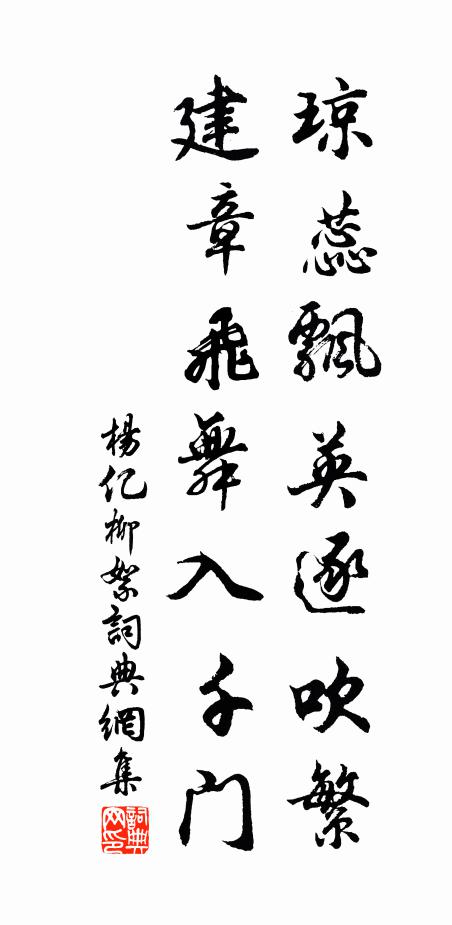 琼蕊飄英逐吹繁
建章飛舞入千門
楊亿柳絮詞典網集
詞典网印